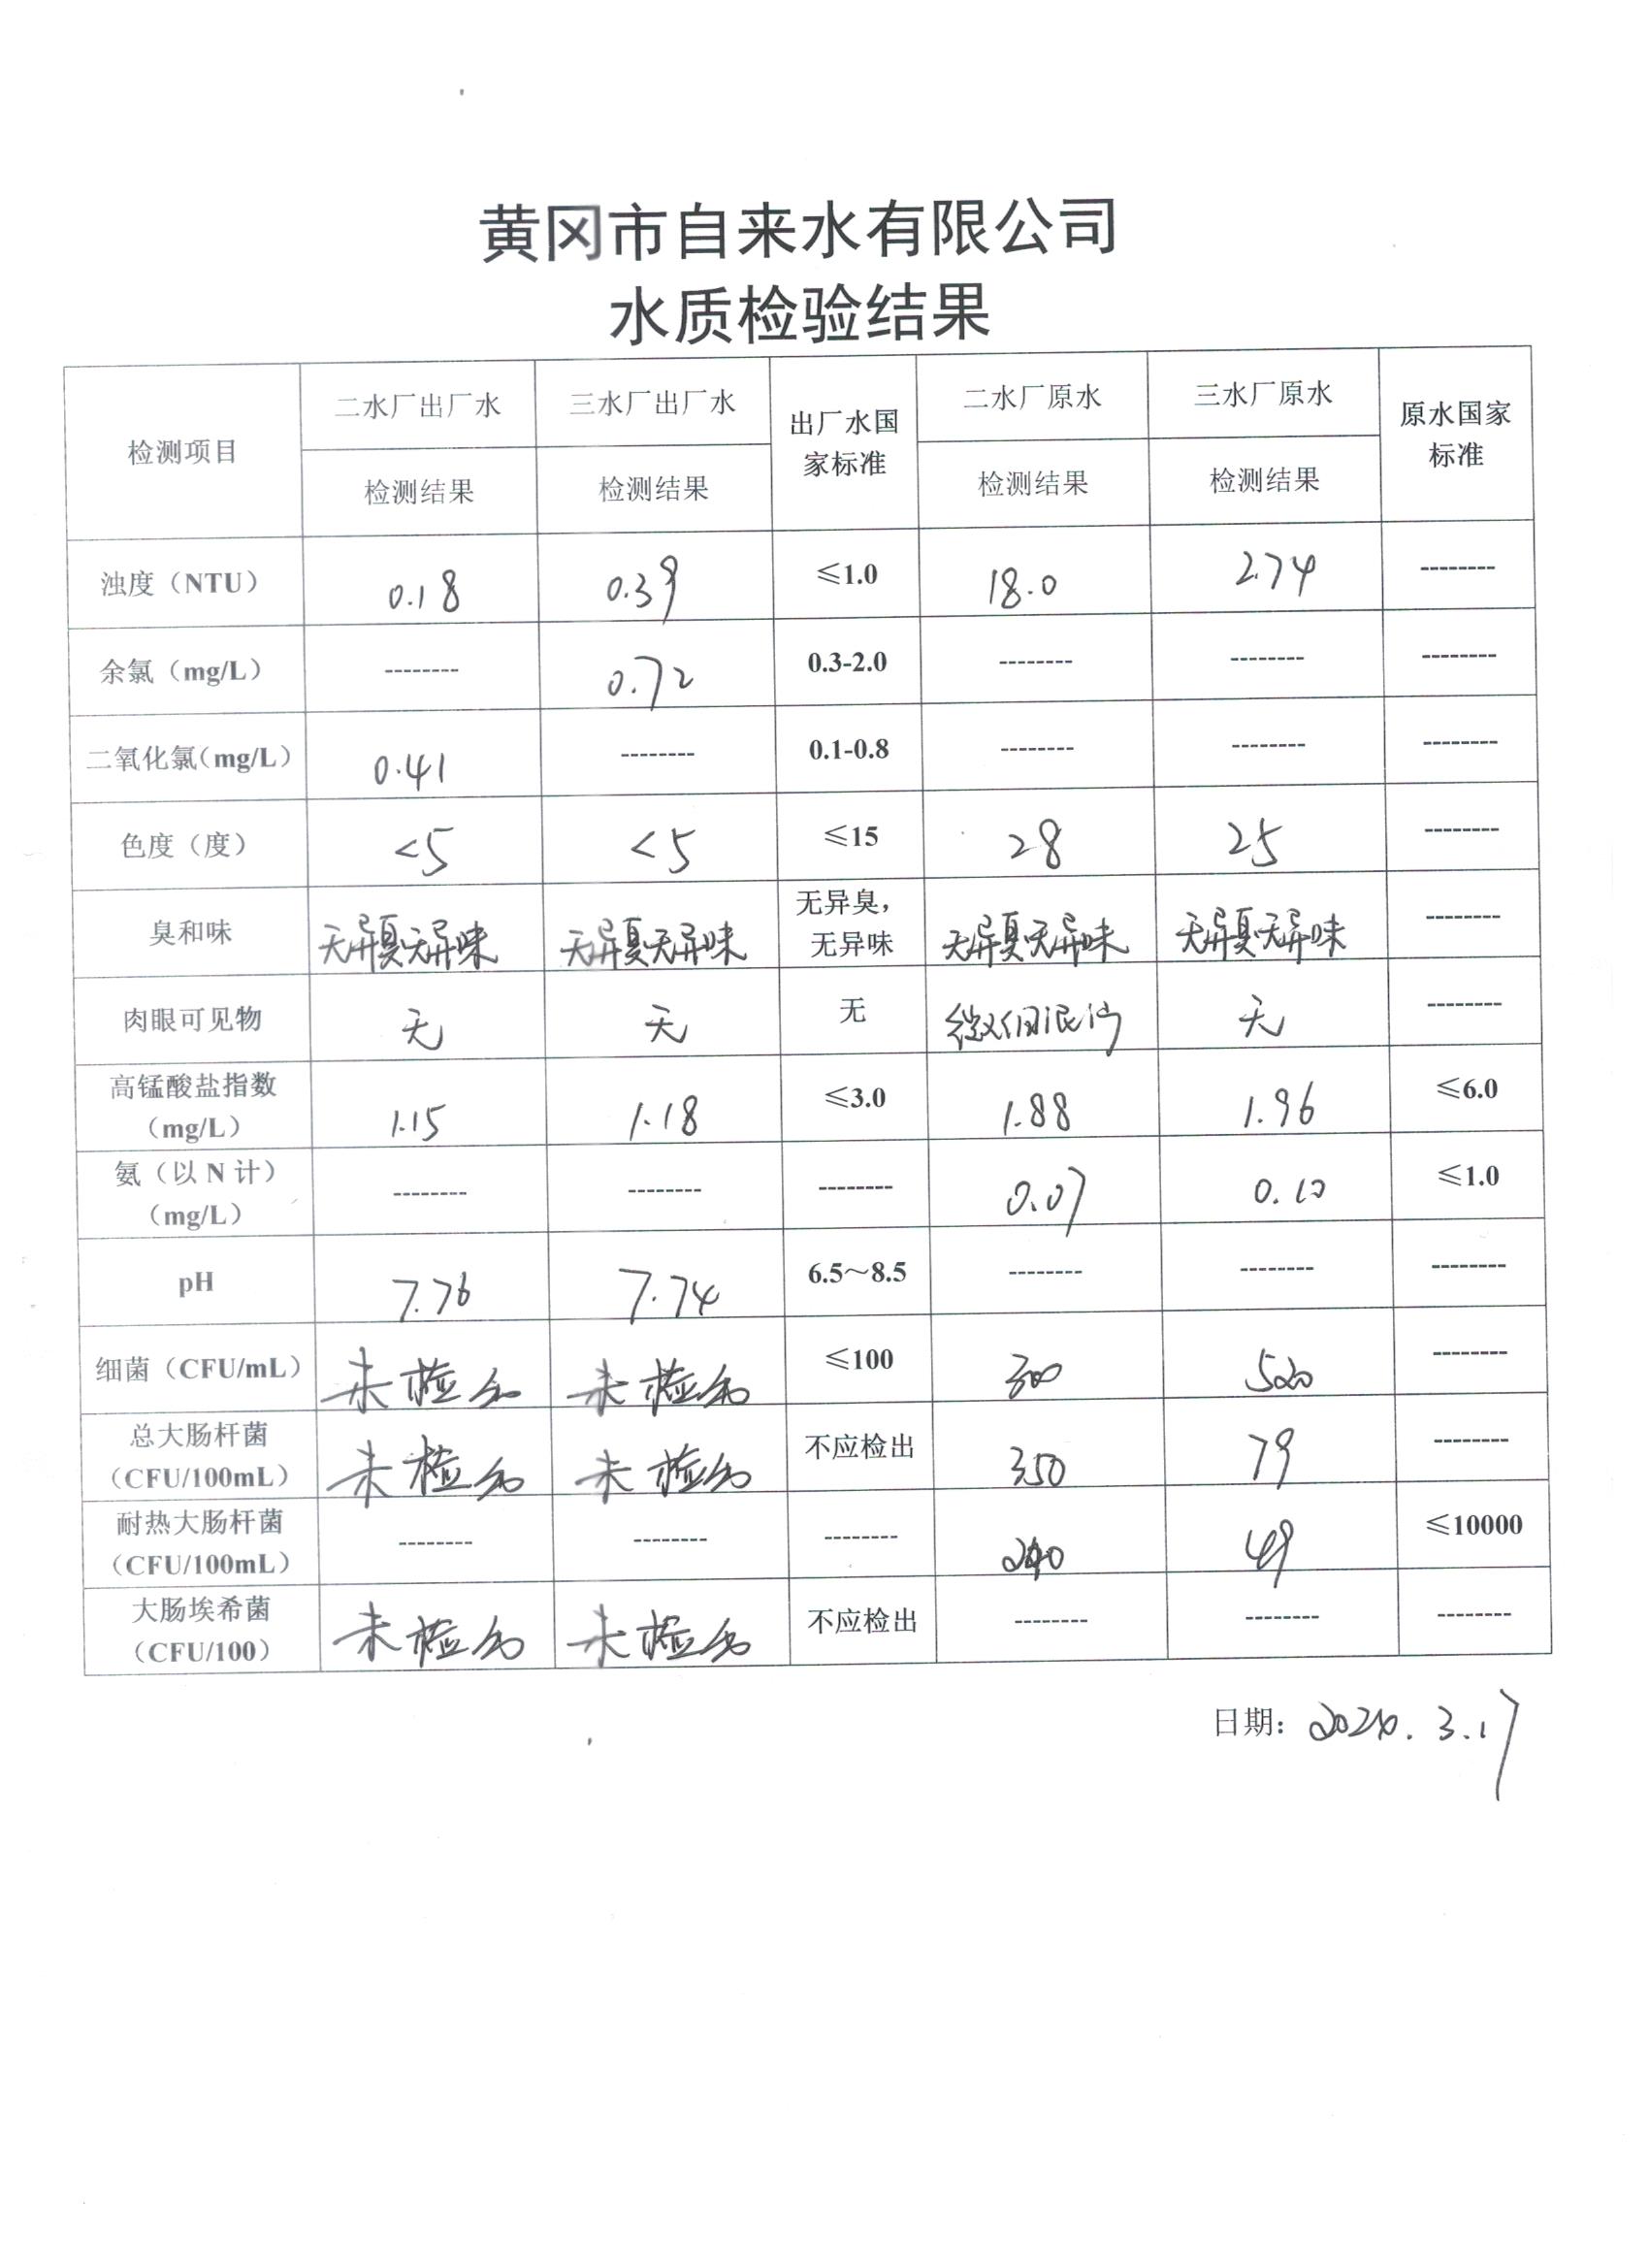 黄冈市自来水有限公司
水质检验结果
检测项目 二水厂出厂水 三水厂出厂水 出厂水国家标准 二水厂原水 三水厂原水 原水国家标准
检测结果 检测结果 检测结果 检测结果
浊度（NTU） 0.18 0.39 ≤1.0 18.0 2.74 --------
余氯（mg/L） -------- 0.72 0.3-2.0 -------- -------- --------
二氧化氯（mg/L） 0.41 -------- 0.1-0.8 -------- -------- --------
色度（度） <5 <5 ≤15 28 25 --------
臭和味 无异臭无异味 无异臭无异味 无异臭，无异味 无异臭无异味 无异臭无异味 --------
肉眼可见物 无 无 无 微细泥沙 无 --------
高锰酸盐指数（mg/L） 1.15 1.18 ≤3.0 1.88 1.96 ≤6.0
氨（以 N 计）（mg/L） -------- -------- -------- 0.07 0.10 ≤1.0
pH 7.76 7.74 6.5～8.5 -------- -------- --------
细菌（CFU/mL） 未检出 未检出 ≤100 300 520 --------
总大肠杆菌（CFU/100mL） 未检出 未检出 不应检出 350 79 --------
耐热大肠杆菌（CFU/100mL） -------- -------- -------- 240 49 ≤10000
大肠埃希菌（CFU/100） 未检出 未检出 不应检出 -------- -------- --------
日期： 3.17